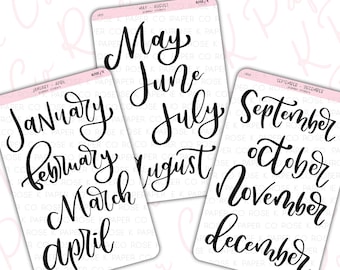 JANUARY - APRIL
January
february
March
april
MAY - AUGUST
May
June
July
August
SEPTEMBER - DECEMBER
September
october
November
december